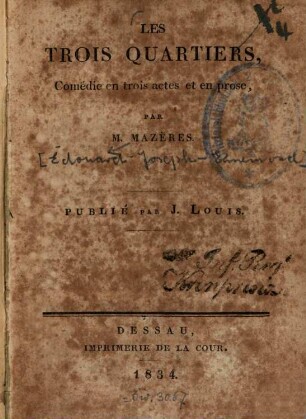 LES
TROIS QUARTIERS,
Comédie en trois actes et en prose,
PAR
M. MAZÈRES.
[Édouard-Joseph-Ennemond]
PUBLIÉ PAR J. LOUIS.
DESSAU,
IMPRIMERIE DE LA COUR.
1834.